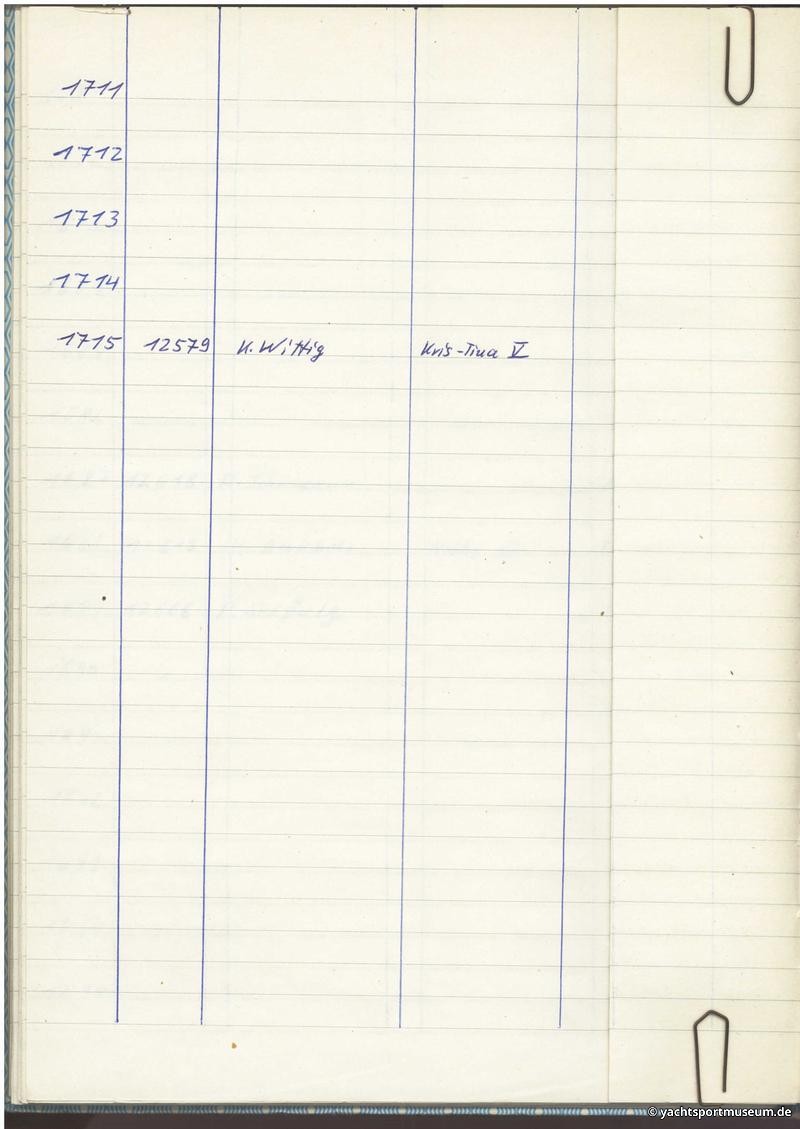 1711
1712
1713
1714
1715 12579 K. Wittig Kris-Tina V
© yachtsportmuseum.de